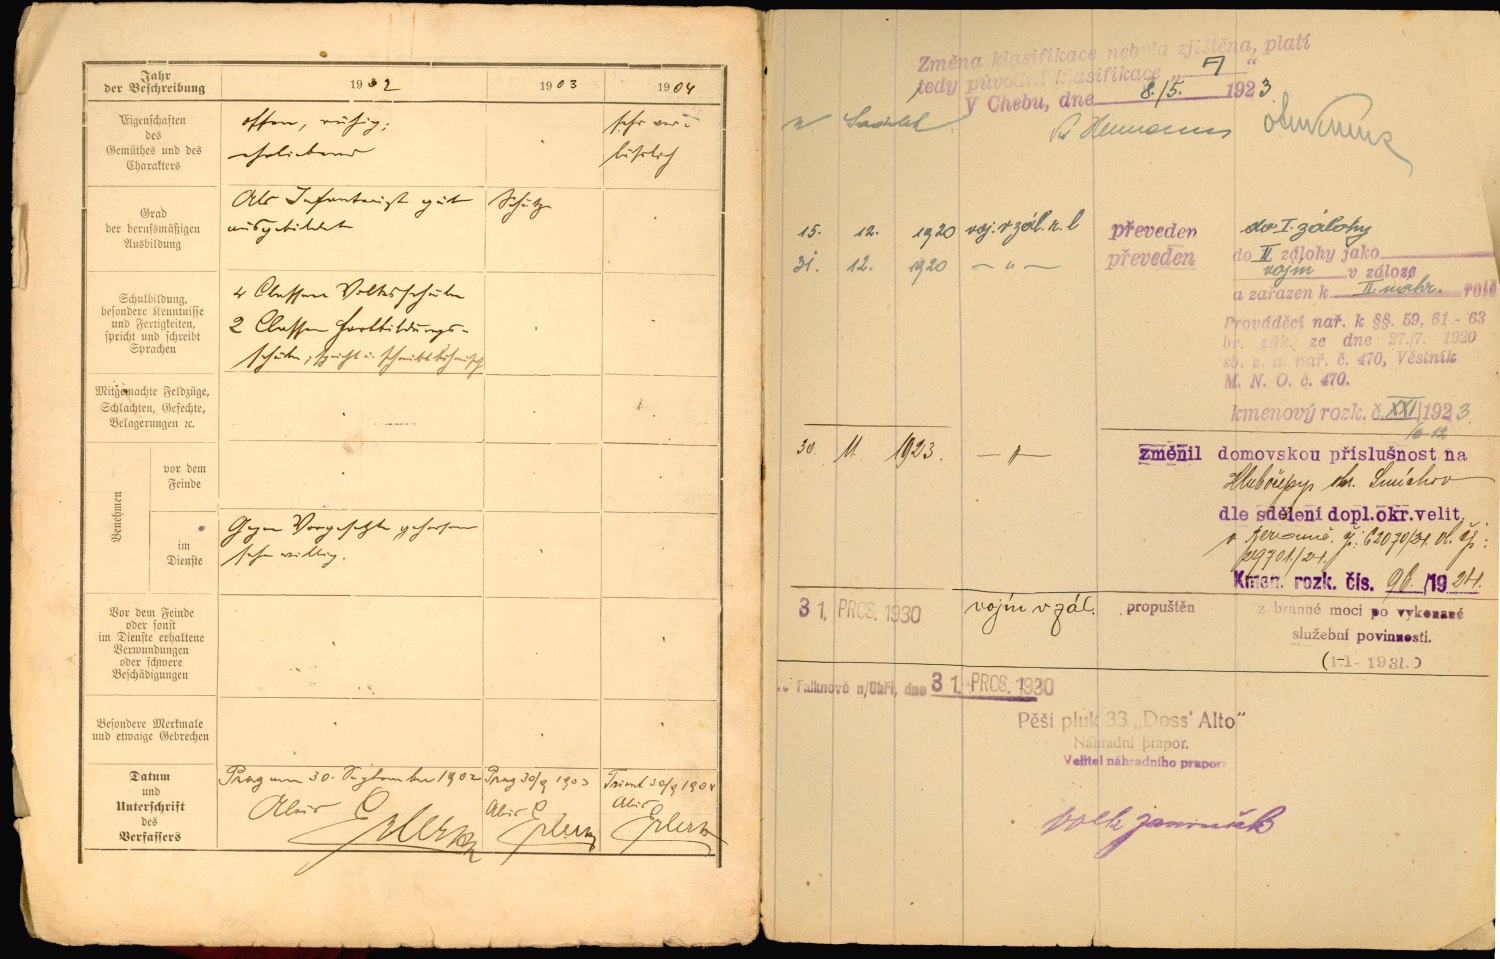 Jahr
der Beschreibung
1902
1903
1904
Eigenschaften
des
Gemüthes und des
Charakters
offen, ruhig;
ehrliebend
sehr ver=
läßlich
Grad
der berufsmäßigen
Ausbildung
Als Infanterist gut
ausgebildet
Schütze
Schulbildung,
besondere Kenntnisse
und Fertigkeiten,
spricht und schreibt
Sprachen
4 Classen Volksschule
2 Classen Fortbildungs-
schule, spricht u. schreibt böhmisch
Mitgemachte Feldzüge,
Schlachten, Gefechte,
Belagerungen ꝛc.
Benehmen
vor dem
Feinde
im
Dienste
Gegen Vorgesetzte gehorsam
sehr willig.
Vor dem Feinde
oder sonst
im Dienste erhaltene
Verwundungen
oder schwere
Beschädigungen
Besondere Merkmale
und etwaige Gebrechen
Datum
und
Unterschrift
des
Verfassers
Prag am 30. September 1902
Prag 30/9 1903
Trient 30/9 1904
Změna klasifikace nebyla zjištěna, platí
tedy původní klasifikace „ 7 “
V Chebu, dne 8./5. 1923
15. 12. 1920 voj. v zál. n. l převeden do I. zálohy
31. 12. 1920 — „ — převeden do II zálohy jako
vojín v záloze
a zařazen k II. náhr. rotě
Prováděcí nař. k §§. 59, 61 - 63
br. zák. ze dne 27./7. 1920
sb. z. a. nař. č. 470, Věstník
M. N. O. č. 470.
kmenový rozk. č. XXI/1923
30. 11. 1923. — „ — změnil domovskou příslušnost na
Hlubočepy okr. Smíchov
dle sdělení dopl. okr. velit.
Kmen. rozk. čís. 96/1924.
31. PROS. 1930 vojín v zál. propuštěn z branné moci po vykonané
služební povinnosti.
(1-I- 1931.)
Ve Falknově n/Ohří, dne 31. PROS. 1930
Pěší pluk 33 „Doss' Alto“
Náhradní prapor.
Velitel náhradního praporu